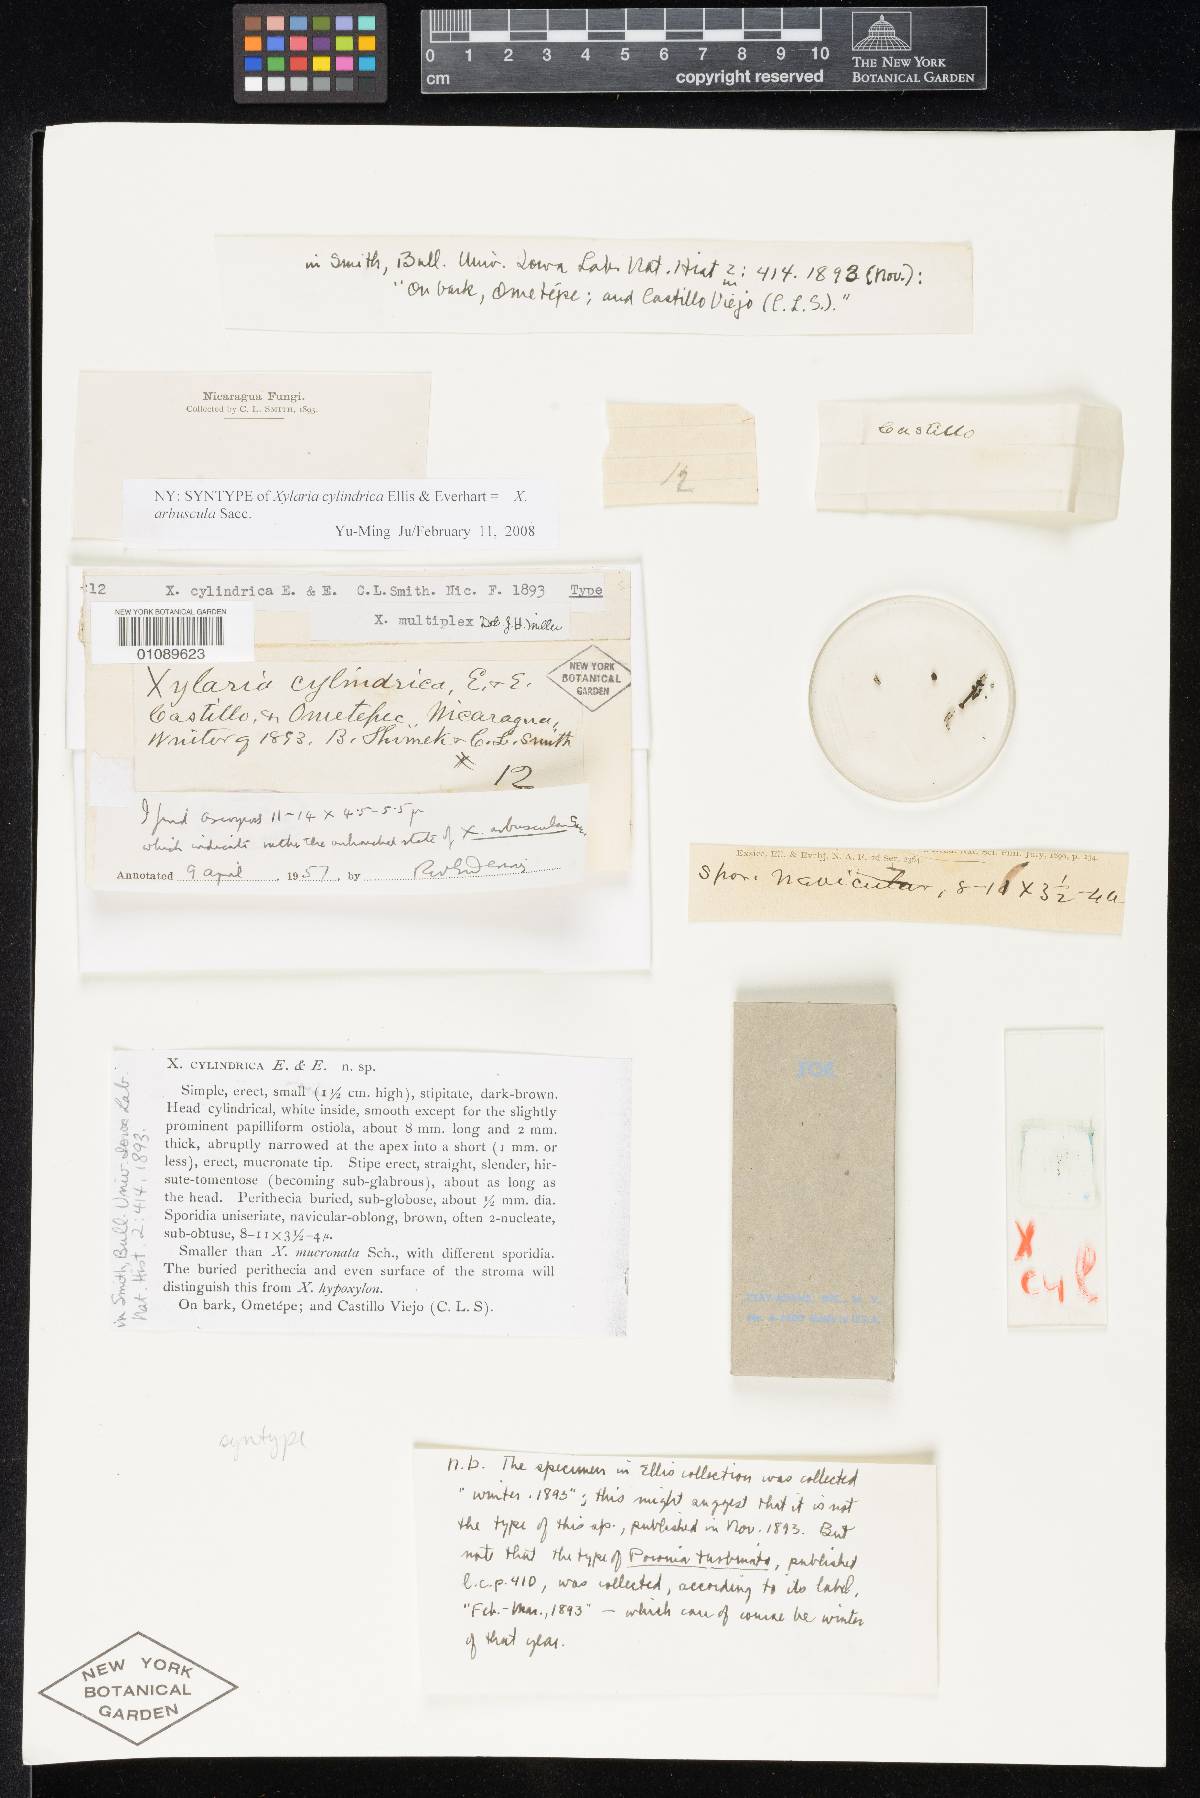 0 1 2 3 4 5 6 7 8 9 10
cm
copyright reserved
THE NEW YORK
BOTANICAL GARDEN
in Smith, Bull. Univ. Iowa Lab. Nat. Hist 2: 414. 1893 (Nov.):
"On bark, Ometépe; and Castillo Viejo (C. L. S.)."
Nicaragua Fungi.
Collected by C. L. SMITH, 1893.
NY: SYNTYPE of Xylaria cylindrica Ellis & Everhart = X.
arbuscula Sacc.
Yu-Ming Ju/February 11, 2008
12
Castillo
12 X. cylindrica E. & E. C.L.Smith. Nic. F. 1893 Type
X. multiplex Det J.H. Miller
NEW YORK BOTANICAL GARDEN
01089623
NEW YORK
BOTANICAL
GARDEN
Xylaria cylindrica, E. & E.
Castillo, & Ometepec, Nicaragua,
Winter of 1893. B. Shimek & C. L. Smith
X
12
I find ascospores 11-14 x 4.5-5.5µ
which indicate rather the unbranched state of X. arbuscula Sacc.
Annotated 9 april, 1957, by RWGDennis
Exsicc. Ell. & Everh. N. A. F. 2d Ser. 2364.
Sci. Phil. July, 1890, p. 234.
Spor. navicular, 8-11 x 3½-4µ
X. CYLINDRICA E. & E. n. sp.
Simple, erect, small (1½ cm. high), stipitate, dark-brown.
Head cylindrical, white inside, smooth except for the slightly
prominent papilliform ostiola, about 8 mm. long and 2 mm.
thick, abruptly narrowed at the apex into a short (1 mm. or
less), erect, mucronate tip. Stipe erect, straight, slender, hir-
sute-tomentose (becoming sub-glabrous), about as long as
the head. Perithecia buried, sub-globose, about ½ mm. dia.
Sporidia uniseriate, navicular-oblong, brown, often 2-nucleate,
sub-obtuse, 8-11×3½-4µ.
Smaller than X. mucronata Sch., with different sporidia.
The buried perithecia and even surface of the stroma will
distinguish this from X. hypoxylon.
On bark, Ometépe; and Castillo Viejo (C. L. S).
in Smith, Bull. Univ. Iowa Lab.
Nat. Hist. 2: 414. 1893.
X
cyl
syntype
n.b. The specimen in Ellis collection was collected
"winter. 1893"; this might suggest that it is not
the type of this sp., published in Nov. 1893. But
note that the type of Poronia turbinata, published
l.c. p. 410, was collected, according to its label,
"Feb.-Mar., 1893" — which can of course be winter
of that year.
NEW YORK
BOTANICAL
GARDEN